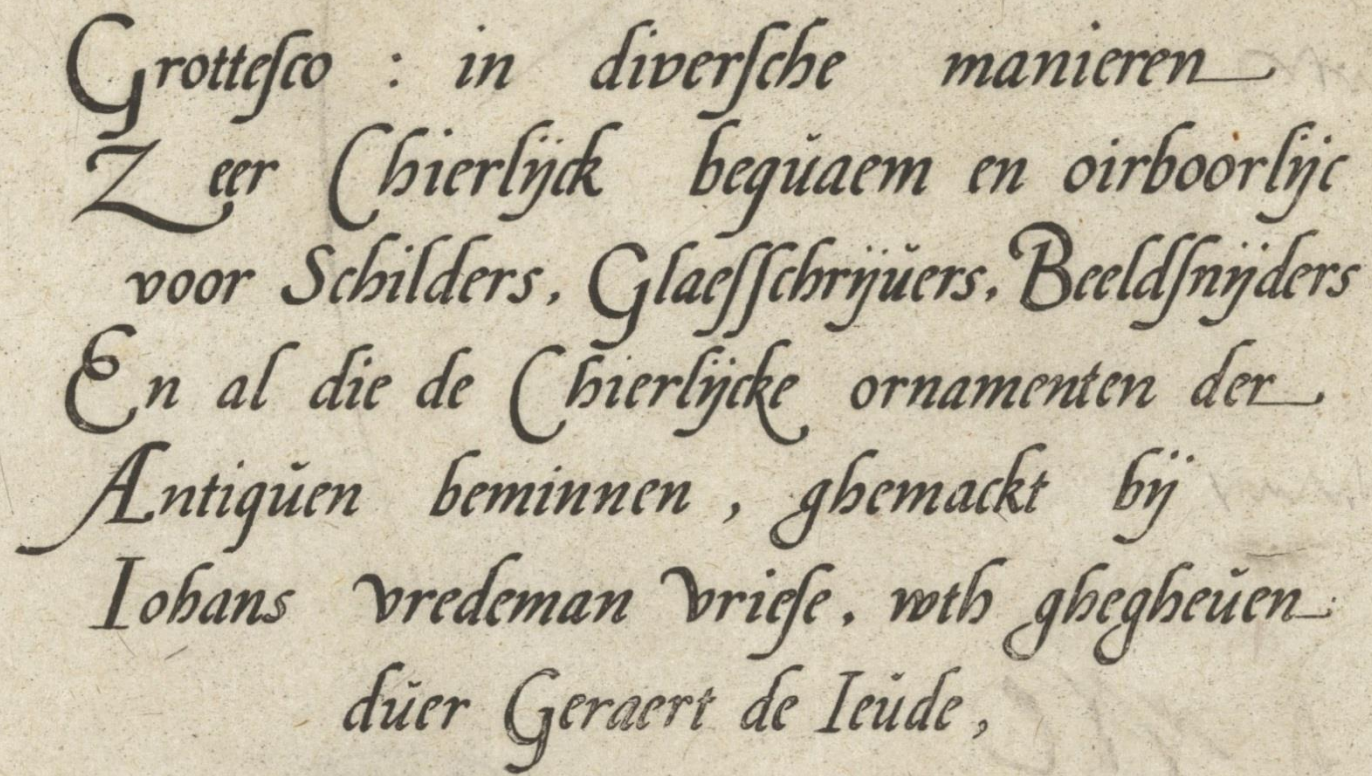 Grotteſco : in diverſche manieren
Zeer Chierlijck beqŭaem en oirboorlijc
voor Schilders, Glaeſſchrijŭers, Beeldſnijders
En al die de Chierlijcke ornamenten der
Antiqŭen beminnen , ghemackt bij
Iohans vredeman vrieſe, wth ghegheŭen
dŭer Geraert de Ieŭde ,